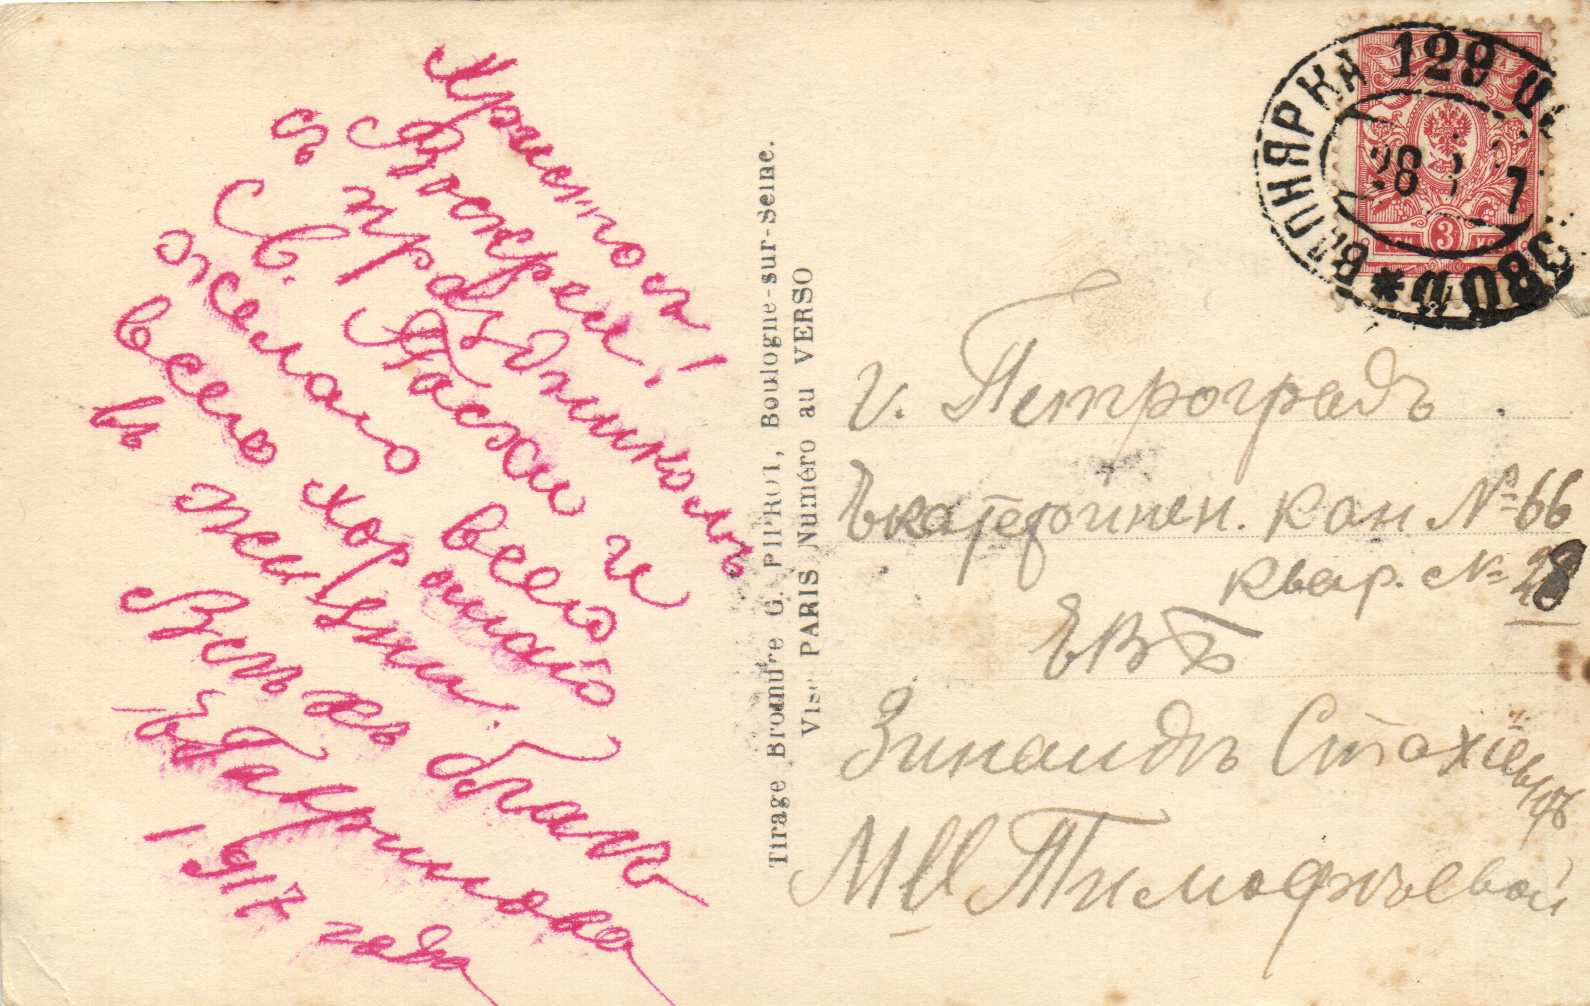 Христосъ
Воскресе!
съ праздникомъ
Св. Пасхи и
желаю всего
всего хорошаго
въ жизни.
Вѣсъ братъ
Гавриловъ
1917 года
Tirage Bromure G. PIPROT, Boulogne-sur-Seine.
Visé PARIS Numéro au VERSO
ВАПНЯРКА 129
28 7
3
г. Петроградъ.
Екатеринен. кан № 66
квар. № 28
ЕВБ
Зинаидѣ Стахіевнѣ
Тимофѣевой